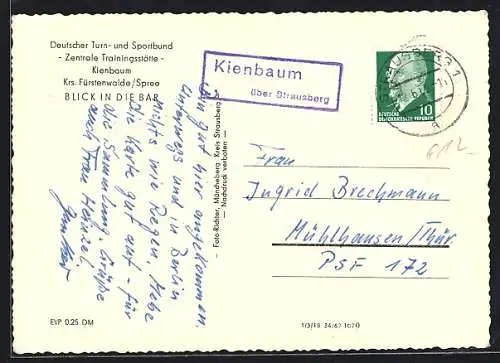 Deutscher Turn- und Sportbund
- Zentrale Trainingsstätte -
Kienbaum
Krs. Fürstenwalde/Spree
BLICK IN DIE BAR
Kienbaum
über Strausberg
STRAUSBERG 1
a
10
DEUTSCHE
DEMOKRATISCHE REPUBLIK
Bin gut hier angekommen.
Unterwegs und in Berlin
nichts wie Regen. Hebe
die Karte gut auf - für
die Sammlung. Grüße
auch Frau Henzel.
Foto-Richter, Müncheberg Kreis Strausberg
— Nachdruck verboten —
Frau
Ingrid Brechmann
Mühlhausen/Thür.
PSF 172
EVP 0.25 DM